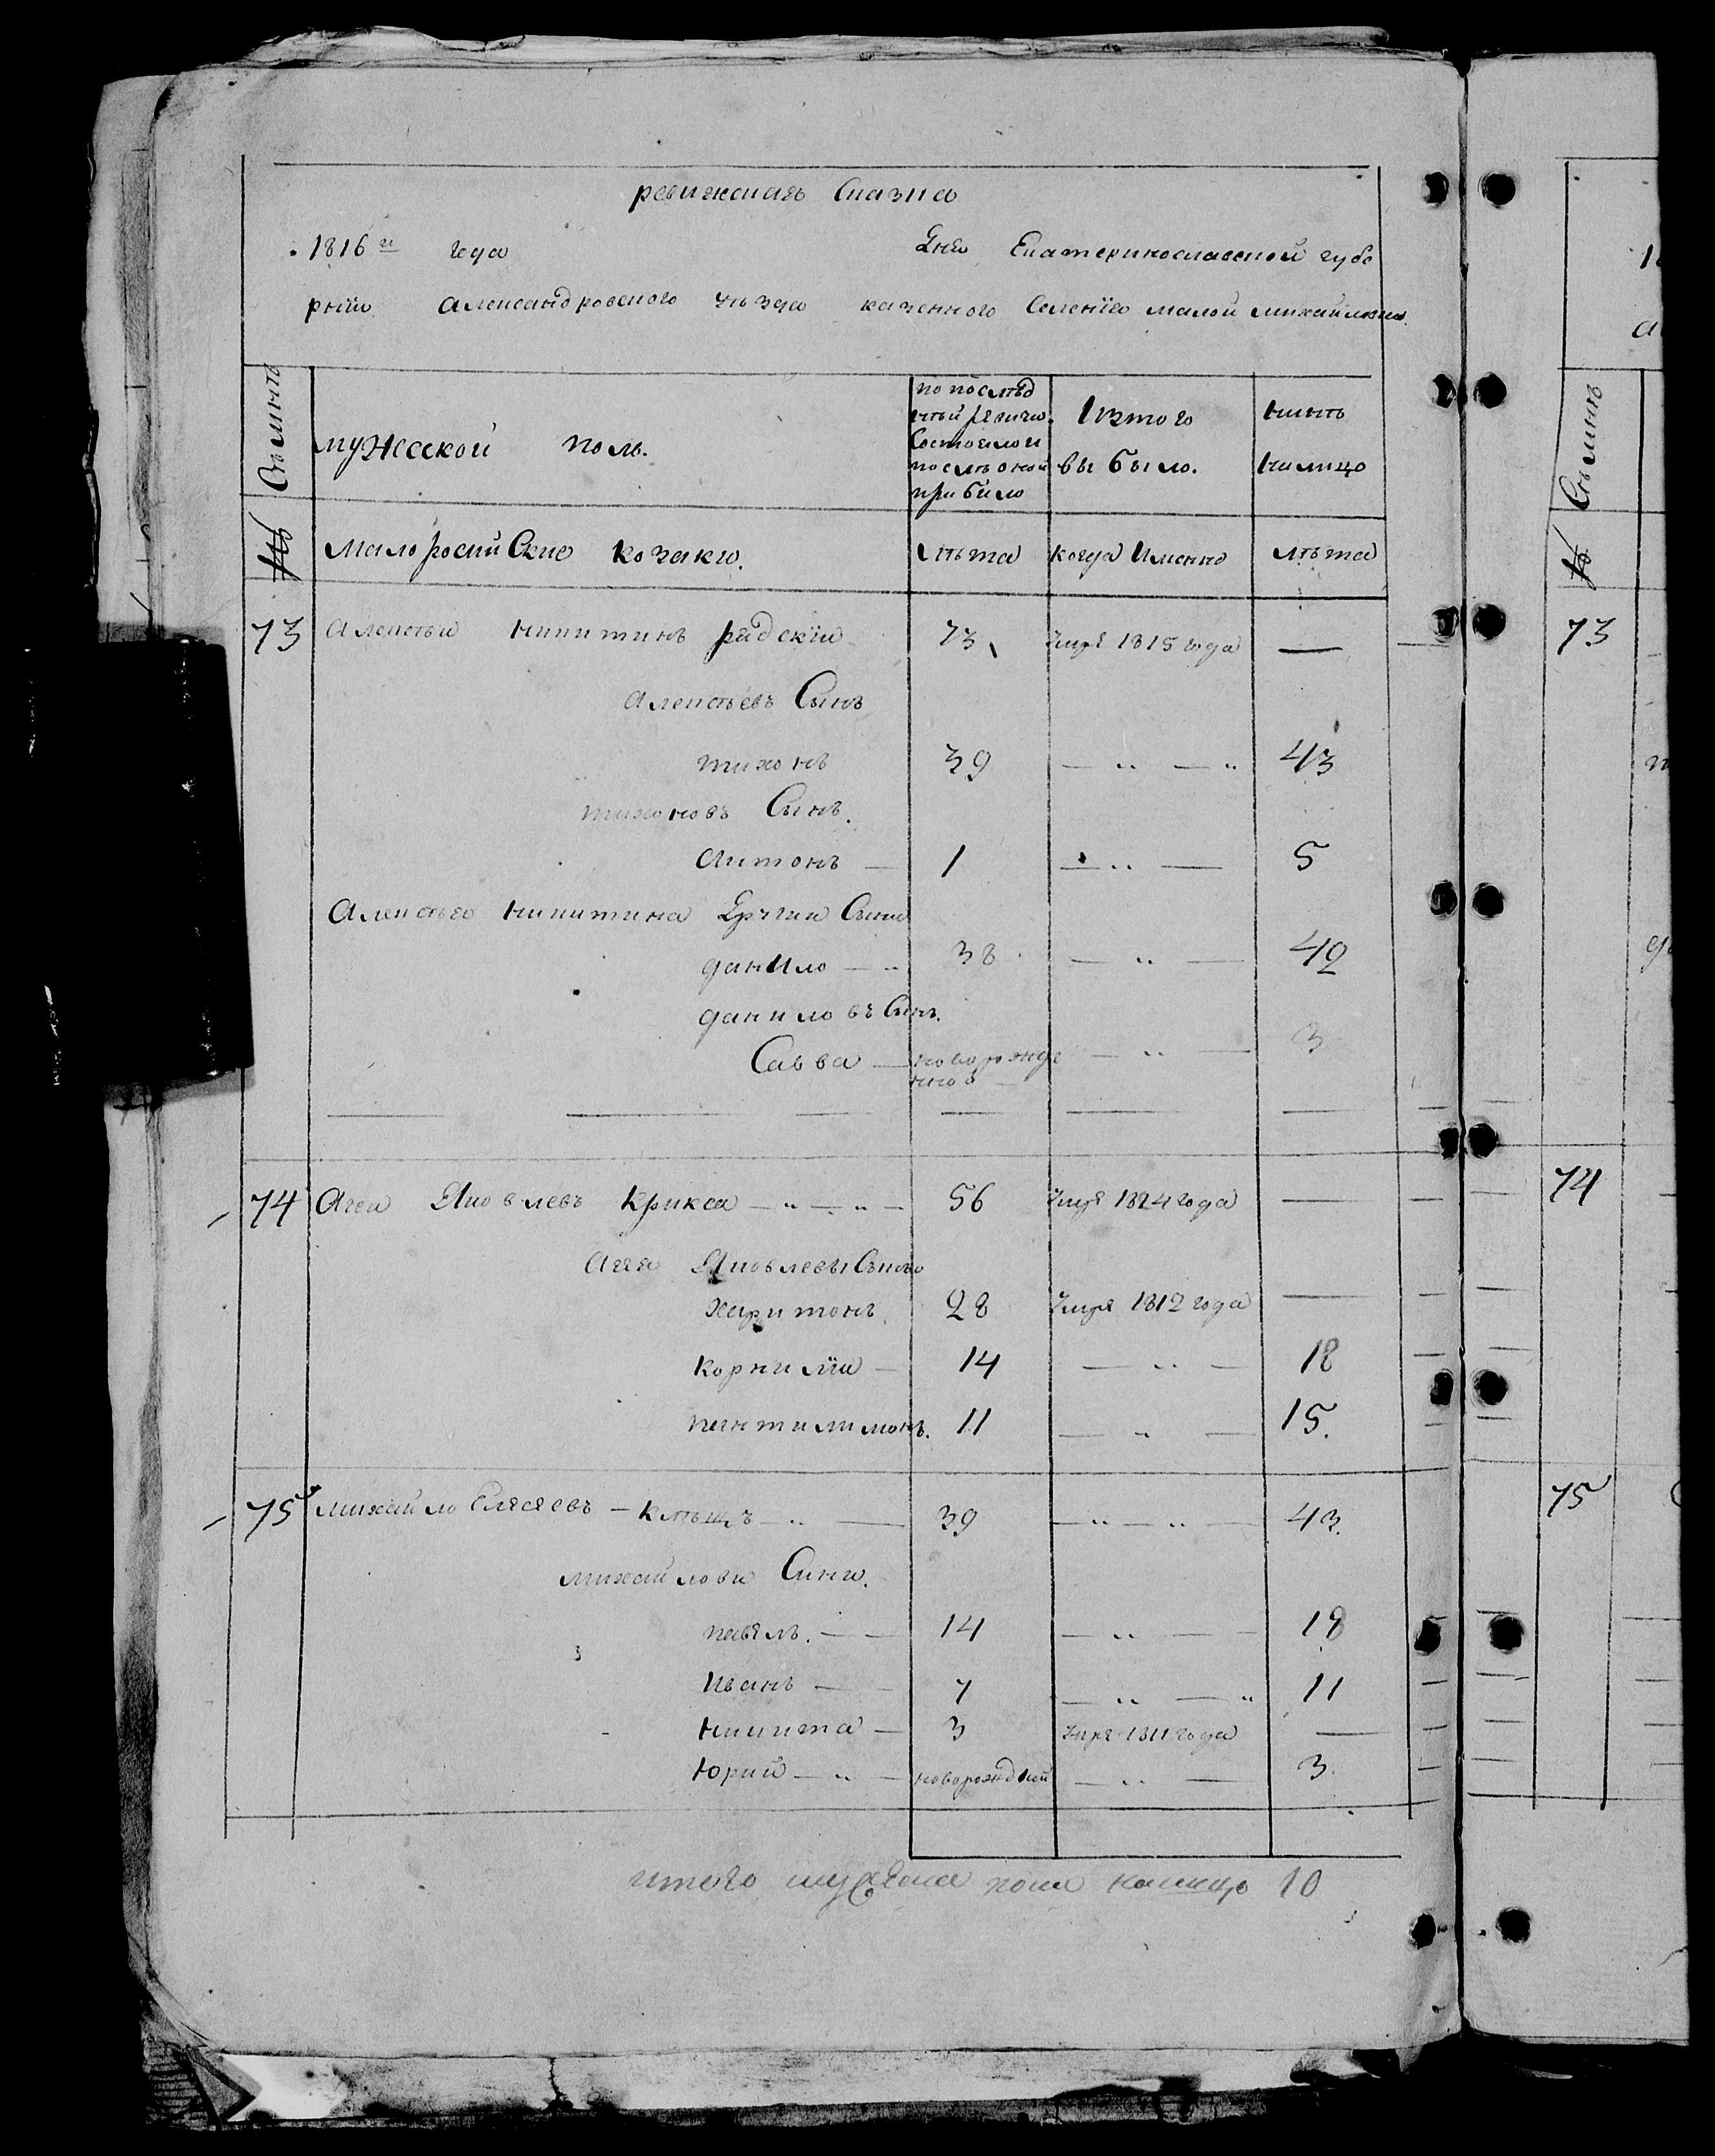 ревижскаѧ Сказка
1816го года Дня Екатеринославской губе
рнїи Александровского уѣзда казенного Селенїя малой михайловки
Сѣминъ
мужеской полъ.
по послѣд
нѣй ревизи
Состояло и
послѣ оной
прибило
Изтого
выбыло.
нынѣ
налицо
№ Малоросий Ские козаки. лѣта когда Именно лѣта
73 Алексѣй никитинъ рядскїй 73 умре 1815 года —
Алексѣевъ Сынъ
тихонъ 39 — " — " 43
тихоновъ Сынъ.
Антонъ — 1 — " — 5
Алексѣя никитина Другии Сынъ
данИло — " 38 — " — 42
даниловъ Сынъ.
Савва — новорожде
нной — " — 3
74 Агей Яковлевъ Крикса — " — " — 56 умре 1824 года —
Агея Яковлевы Сыновя
харитонъ 28 умре 1812 года —
корнилїй — 14 — " — 18
пантилимонъ. 11 — " — 15.
75 михайло Елесеевъ — клѣщъ — " — 39 — " — " — 43.
михайлови Сини.
павелъ. — — 14 — " — — 18
Иванъ — — 7 — " — " 11
никита — 3 умре 1811 года —
Юрий — " — новорождний — " — 3.
итого мужеска пола налицо 10
73
74
75